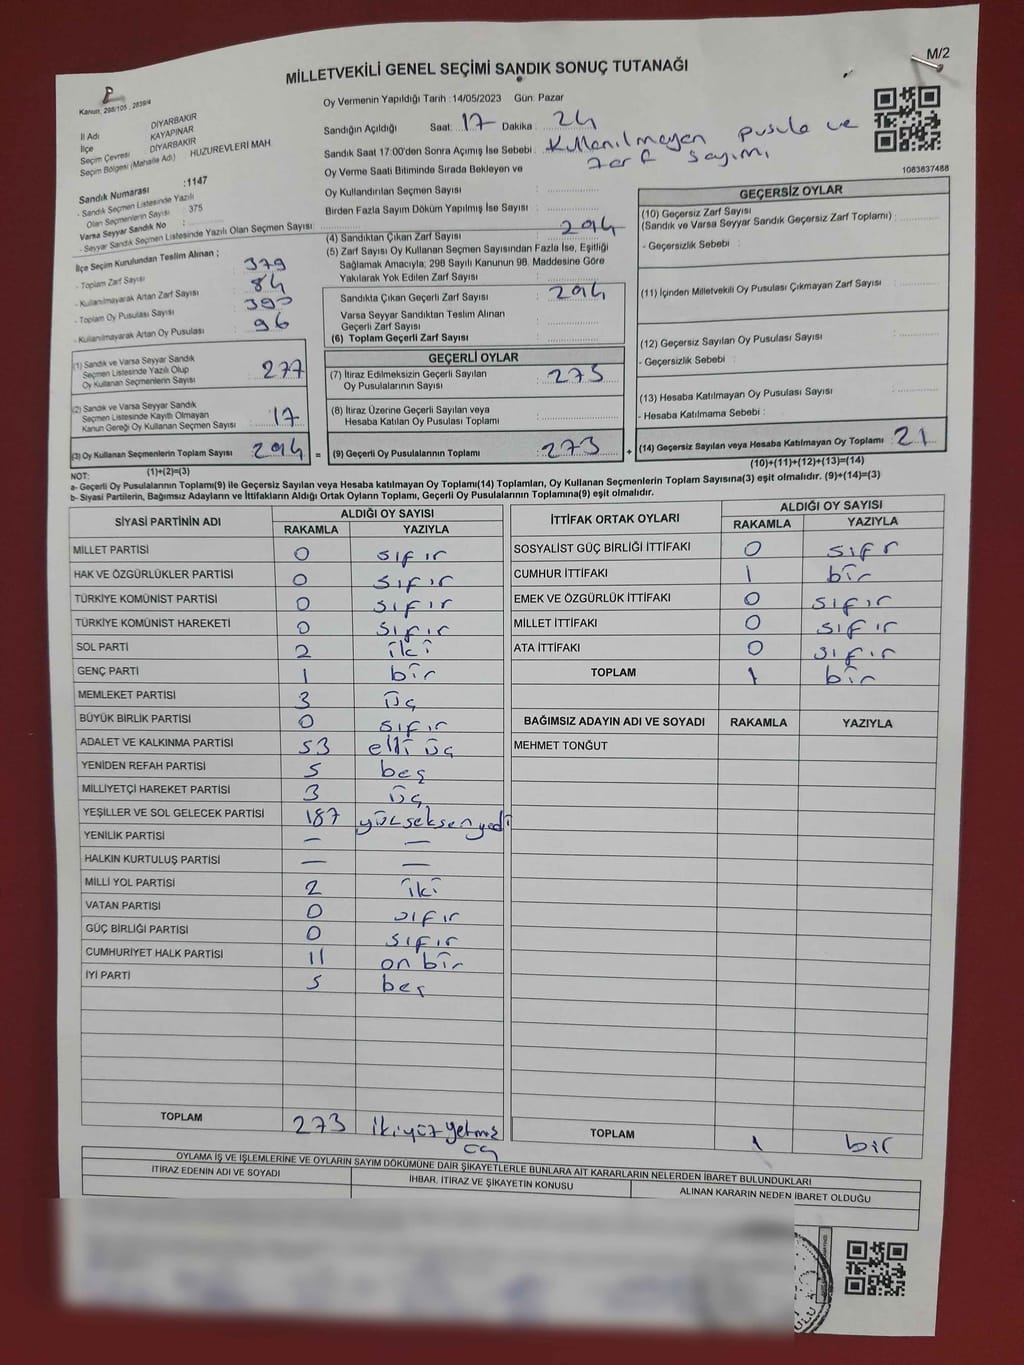 M/2
MİLLETVEKİLİ GENEL SEÇİMİ SANDIK SONUÇ TUTANAĞI
Kanun, 298/105 , 2839/4
İl Adı DİYARBAKIR
İlçe KAYAPINAR
Seçim Çevresi DİYARBAKIR
Seçim Bölgesi (Mahalle Adı) HUZUREVLERİ MAH.
Sandık Numarası :1147
- Sandık Seçmen Listesinde Yazılı
Olan Seçmenlerin Sayısı 375
Varsa Seyyar Sandık No :
- Seyyar Sandık Seçmen Listesinde Yazılı Olan Seçmen Sayısı:
İlçe Seçim Kurulundan Teslim Alınan ;
- Toplam Zarf Sayısı : 379
- Kullanılmayarak Artan Zarf Sayısı : 84
- Toplam Oy Pusulası Sayısı :
- Kullanılmayarak Artan Oy Pusulası : 96
(1) Sandık ve Varsa Seyyar Sandık
Seçmen Listesinde Yazılı Olup
Oy Kullanan Seçmenlerin Sayısı : 277
(2) Sandık ve Varsa Seyyar Sandık
Seçmen Listesinde Kayıtlı Olmayan
Kanun Gereği Oy Kullanan Seçmen Sayısı : 17
(3) Oy Kullanan Seçmenlerin Toplam Sayısı : 294 =
(1)+(2)=(3)
Oy Vermenin Yapıldığı Tarih :14/05/2023 Gün: Pazar
Sandığın Açıldığı Saat: 17 Dakika : 24
Sandık Saat 17:00'den Sonra Açımış İse Sebebi : Kullanılmayan pusula ve
zarf sayımı
Oy Verme Saati Bitiminde Sırada Bekleyen ve
Oy Kullandırılan Seçmen Sayısı :
Birden Fazla Sayım Döküm Yapılmış İse Sayısı :
(4) Sandıktan Çıkan Zarf Sayısı : 294
(5) Zarf Sayısı Oy Kullanan Seçmen Sayısından Fazla İse, Eşitliği
Sağlamak Amacıyla; 298 Sayılı Kanunun 98. Maddesine Göre
Yakılarak Yok Edilen Zarf Sayısı :
Sandıkta Çıkan Geçerli Zarf Sayısı : 294
Varsa Seyyar Sandıktan Teslim Alınan
Geçerli Zarf Sayısı :
(6) Toplam Geçerli Zarf Sayısı :
GEÇERLİ OYLAR
(7) İtiraz Edilmeksizin Geçerli Sayılan
Oy Pusulalarının Sayısı : 273
(8) İtiraz Üzerine Geçerli Sayılan veya
Hesaba Katılan Oy Pusulası Toplamı :
(9) Geçerli Oy Pusulalarının Toplamı : 273 +
1083637488
GEÇERSİZ OYLAR
(10) Geçersiz Zarf Sayısı
(Sandık ve Varsa Seyyar Sandık Geçersiz Zarf Toplamı) :
- Geçersizlik Sebebi :
(11) İçinden Milletvekili Oy Pusulası Çıkmayan Zarf Sayısı :
(12) Geçersiz Sayılan Oy Pusulası Sayısı :
- Geçersizlik Sebebi :
(13) Hesaba Katılmayan Oy Pusulası Sayısı :
- Hesaba Katılmama Sebebi :
(14) Geçersiz Sayılan veya Hesaba Katılmayan Oy Toplamı : 21
(10)+(11)+(12)+(13)=(14)
NOT:
a- Geçerli Oy Pusulalarının Toplamı(9) ile Geçersiz Sayılan veya Hesaba Katılmayan Oy Toplamı(14) Toplamları, Oy Kullanan Seçmenlerin Toplam Sayısına(3) eşit olmalıdır. (9)+(14)=(3)
b- Siyasi Partilerin, Bağımsız Adayların ve İttifakların Aldığı Ortak Oyların Toplamı, Geçerli Oy Pusulalarının Toplamına(9) eşit olmalıdır.
SİYASİ PARTİNİN ADI ALDIĞI OY SAYISI
RAKAMLA YAZIYLA
MİLLET PARTİSİ 0 sıfır
HAK VE ÖZGÜRLÜKLER PARTİSİ 0 sıfır
TÜRKİYE KOMÜNİST PARTİSİ 0 sıfır
TÜRKİYE KOMÜNİST HAREKETİ 0 sıfır
SOL PARTİ 2 iki
GENÇ PARTİ 1 bir
MEMLEKET PARTİSİ 3 üç
BÜYÜK BİRLİK PARTİSİ 0 sıfır
ADALET VE KALKINMA PARTİSİ 53 elli üç
YENİDEN REFAH PARTİSİ 5 beş
MİLLİYETÇİ HAREKET PARTİSİ 3 üç
YEŞİLLER VE SOL GELECEK PARTİSİ 187 yükseksenyedi
YENİLİK PARTİSİ — —
HALKIN KURTULUŞ PARTİSİ — —
MİLLİ YOL PARTİSİ 2 iki
VATAN PARTİSİ 0 sıfır
GÜÇ BİRLİĞİ PARTİSİ 0 sıfır
CUMHURİYET HALK PARTİSİ 11 on bir
İYİ PARTİ 5 beş
TOPLAM 273 ikiyüz yetmiş
üç
İTTİFAK ORTAK OYLARI ALDIĞI OY SAYISI
RAKAMLA YAZIYLA
SOSYALİST GÜÇ BİRLİĞİ İTTİFAKI 0 sıfr
CUMHUR İTTİFAKI 1 bir
EMEK VE ÖZGÜRLÜK İTTİFAKI 0 sıfır
MİLLET İTTİFAKI 0 sıfır
ATA İTTİFAKI 0 sıfır
TOPLAM 1 bir
BAĞIMSIZ ADAYIN ADI VE SOYADI RAKAMLA YAZIYLA
MEHMET TONĞUT
TOPLAM 1 bir
OYLAMA İŞ VE İŞLEMLERİNE VE OYLARIN SAYIM DÖKÜMÜNE DAİR ŞİKAYETLERLE BUNLARA AİT KARARLARIN NELERDEN İBARET BULUNDUKLARI
İTİRAZ EDENİN ADI VE SOYADI İHBAR, İTİRAZ VE ŞİKAYETİN KONUSU ALINAN KARARIN NEDEN İBARET OLDUĞU